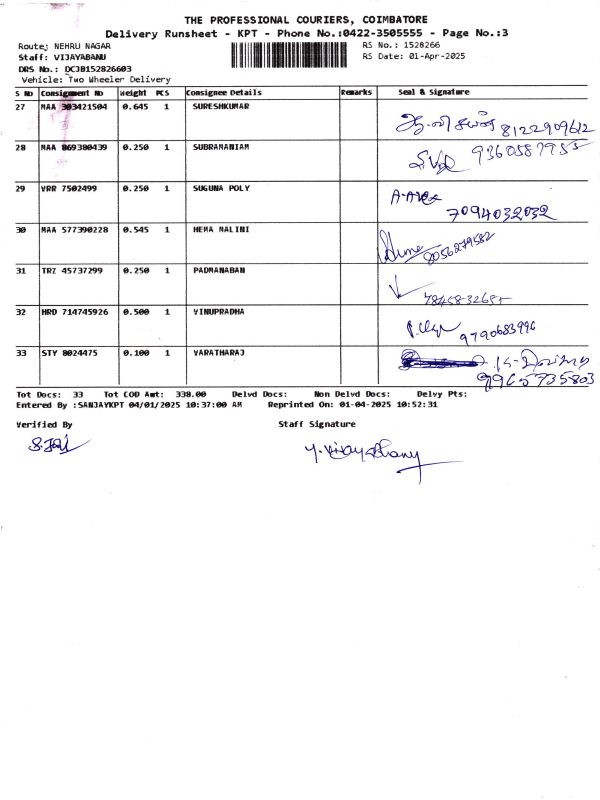 THE PROFESSIONAL COURIERS, COIMBATORE
Delivery Runsheet - KPT - Phone No.:0422-3505555 - Page No.:3
Route: NEHRU NAGAR RS No.: 1528266
Staff: VIJAYABANU RS Date: 01-Apr-2025
DRS No.: DCJB152826603
Vehicle: Two Wheeler Delivery
S No Consignment No Weight PCS Consignee Details Remarks Seal & Signature
27 MAA 303421504 0.645 1 SURESHKUMAR
8122909612
28 MAA 869380439 0.250 1 SUBRAMANIAM
9360587955
29 VRR 7502499 0.250 1 SUGUNA POLY
7094032032
30 MAA 577390228 0.545 1 HEMA MALINI
8056279582
31 TRZ 45737299 0.250 1 PADMANABAN
32 HRD 714745926 0.500 1 VINUPRADHA
9790683996
33 STY 8024475 0.100 1 VARATHARAJ
9965735803
Tot Docs: 33 Tot COD Amt: 338.00 Delvd Docs: Non Delvd Docs: Delvy Pts:
Entered By :SANJAYKPT 04/01/2025 10:37:00 AM Reprinted On: 01-04-2025 10:52:31
Verified By Staff Signature